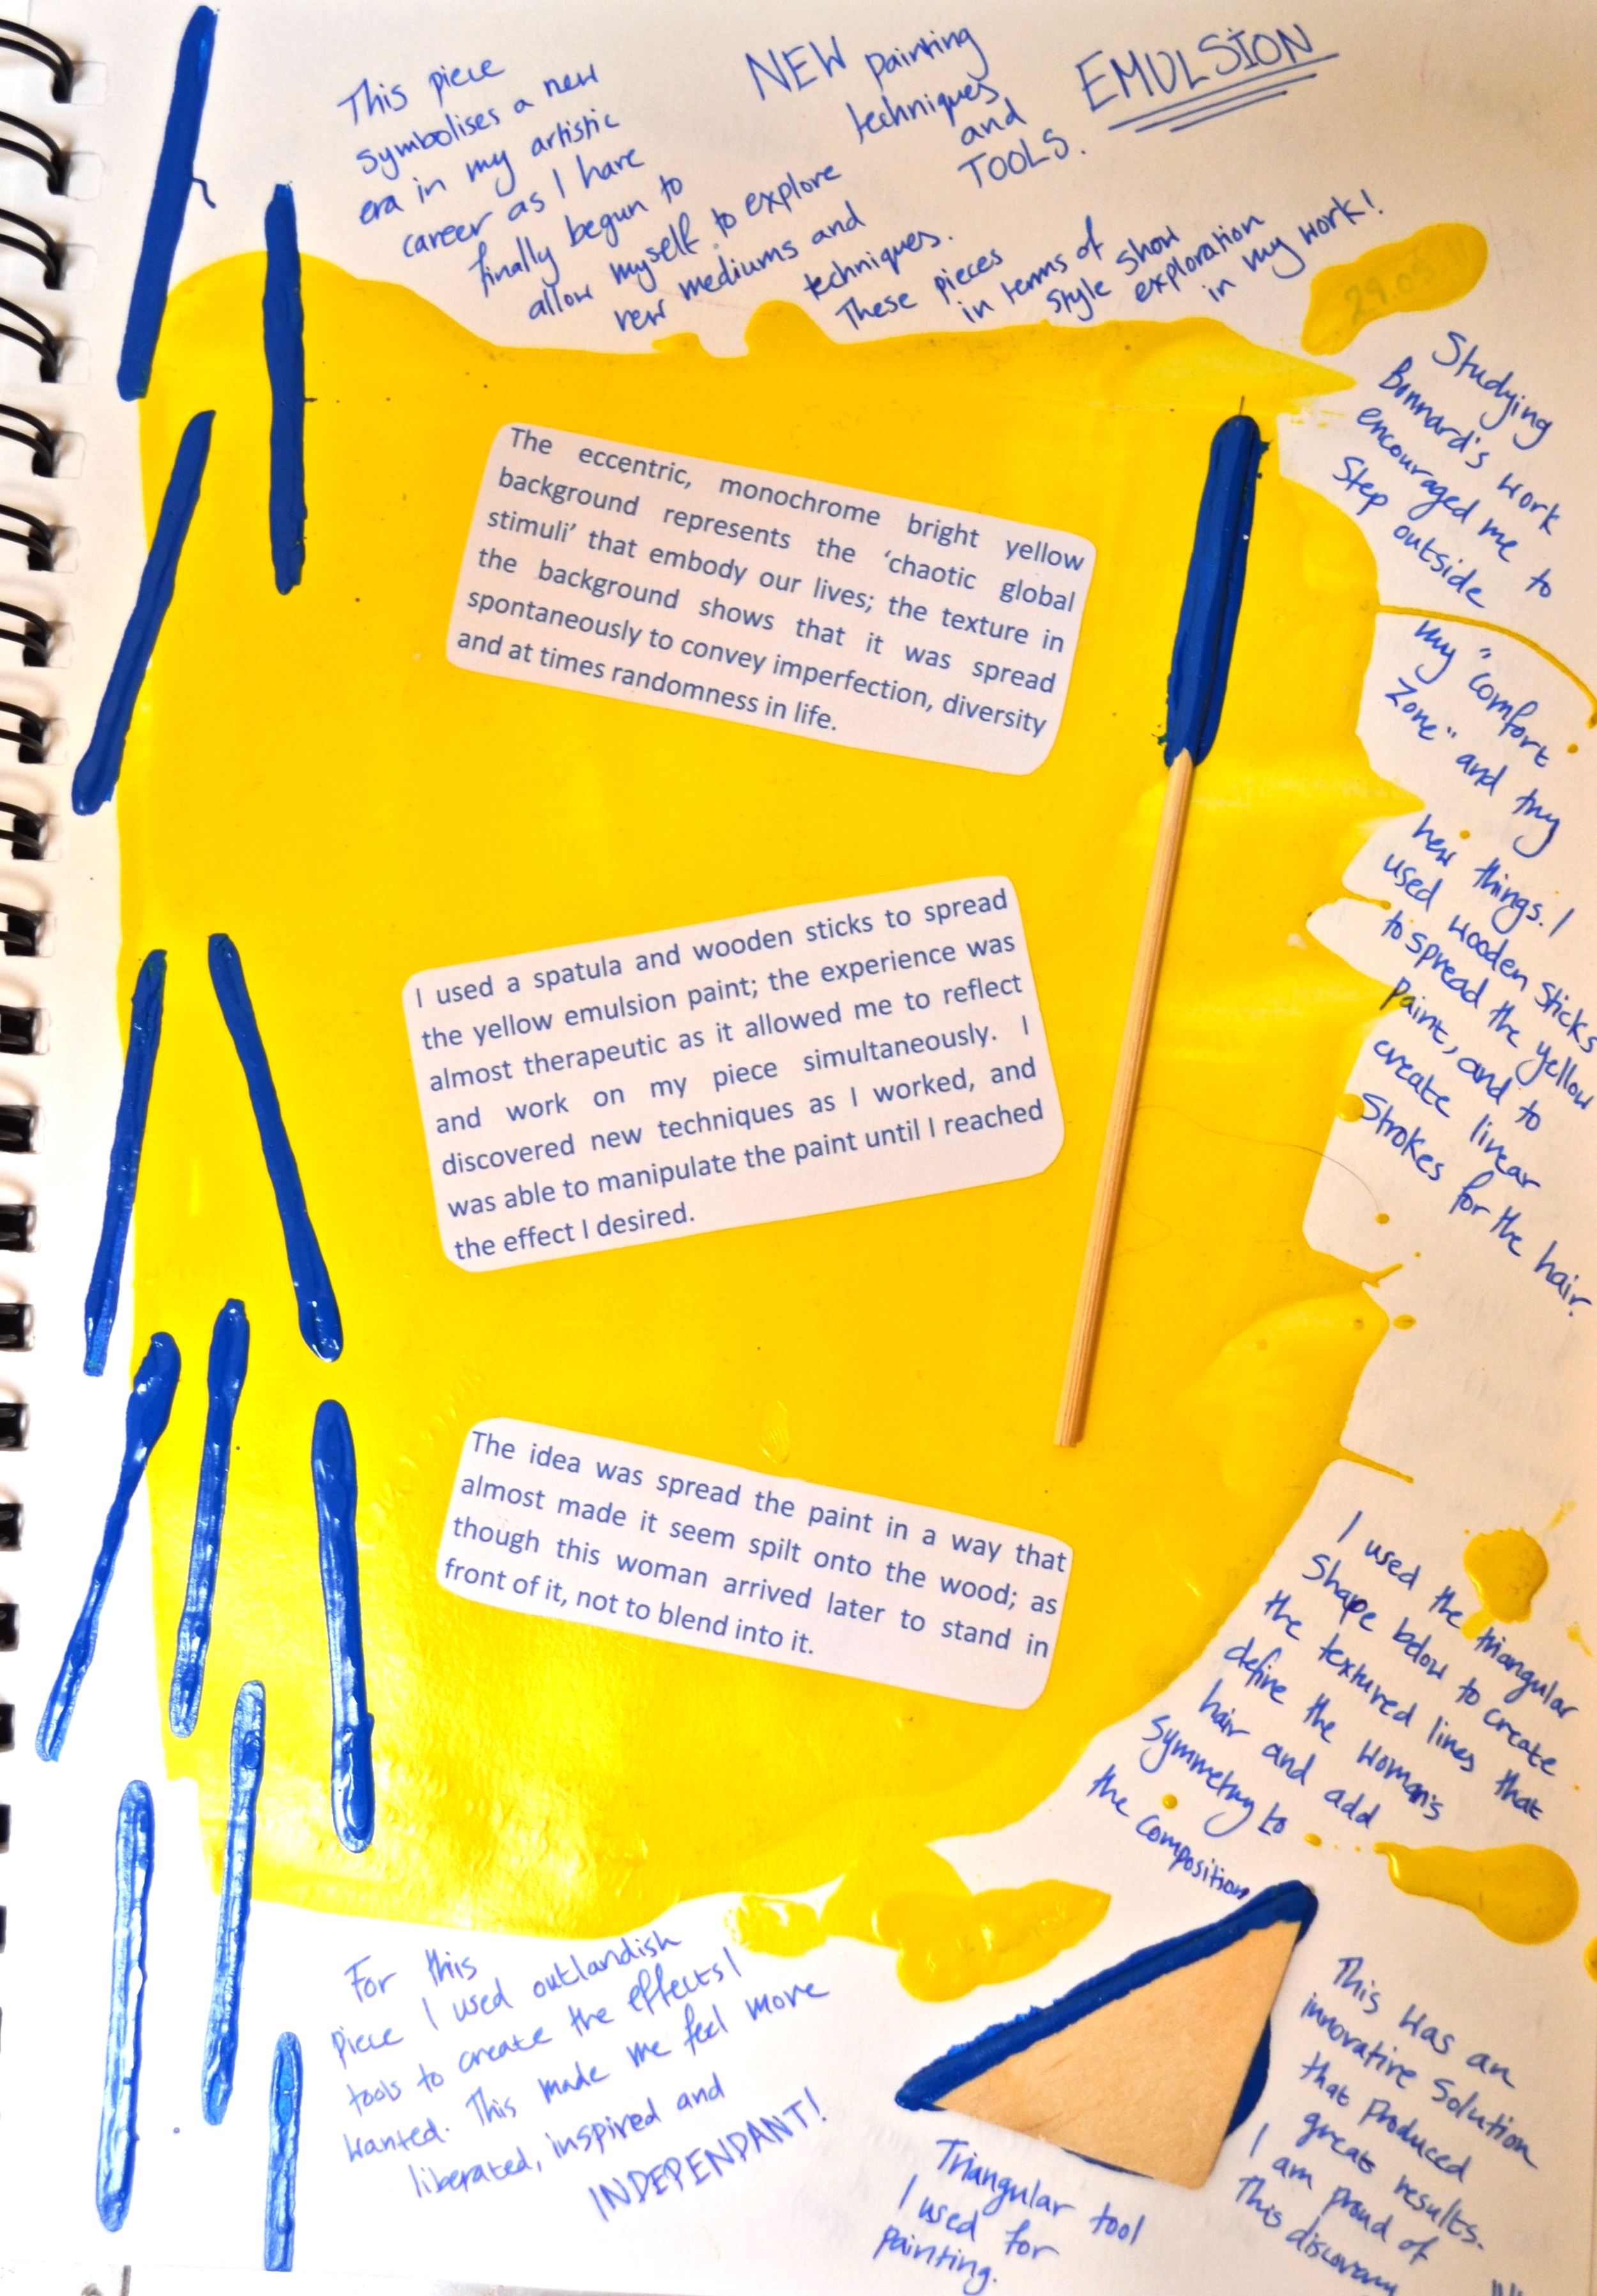 This piece
symbolises a new
era in my artistic
career as I have
finally begun to
allow myself to explore
new mediums and
techniques.
These pieces
in terms of
style show
exploration
in my work!
NEW painting
techniques
and
TOOLS.
EMULSION
29.05
Studying
Bonnard's work
encouraged me to
step outside
my "comfort
zone" and try
new things. I
used wooden sticks
to spread the yellow
paint, and to
create linear
strokes for the hair.
The eccentric, monochrome bright yellow
background represents the 'chaotic global
stimuli' that embody our lives; the texture in
the background shows that it was spread
spontaneously to convey imperfection, diversity
and at times randomness in life.
I used a spatula and wooden sticks to spread
the yellow emulsion paint; the experience was
almost therapeutic as it allowed me to reflect
and work on my piece simultaneously. I
discovered new techniques as I worked, and
was able to manipulate the paint until I reached
the effect I desired.
The idea was spread the paint in a way that
almost made it seem spilt onto the wood; as
though this woman arrived later to stand in
front of it, not to blend into it.
I used the triangular
shape below to create
the textured lines that
define the woman's
hair and add
symmetry to
the composition
For this
piece I used outlandish
tools to create the effects I
wanted. This made me feel more
liberated, inspired and
INDEPENDANT!
Triangular tool
I used for
painting.
This was an
innovative solution
that produced
great results.
I am proud of
this discovery